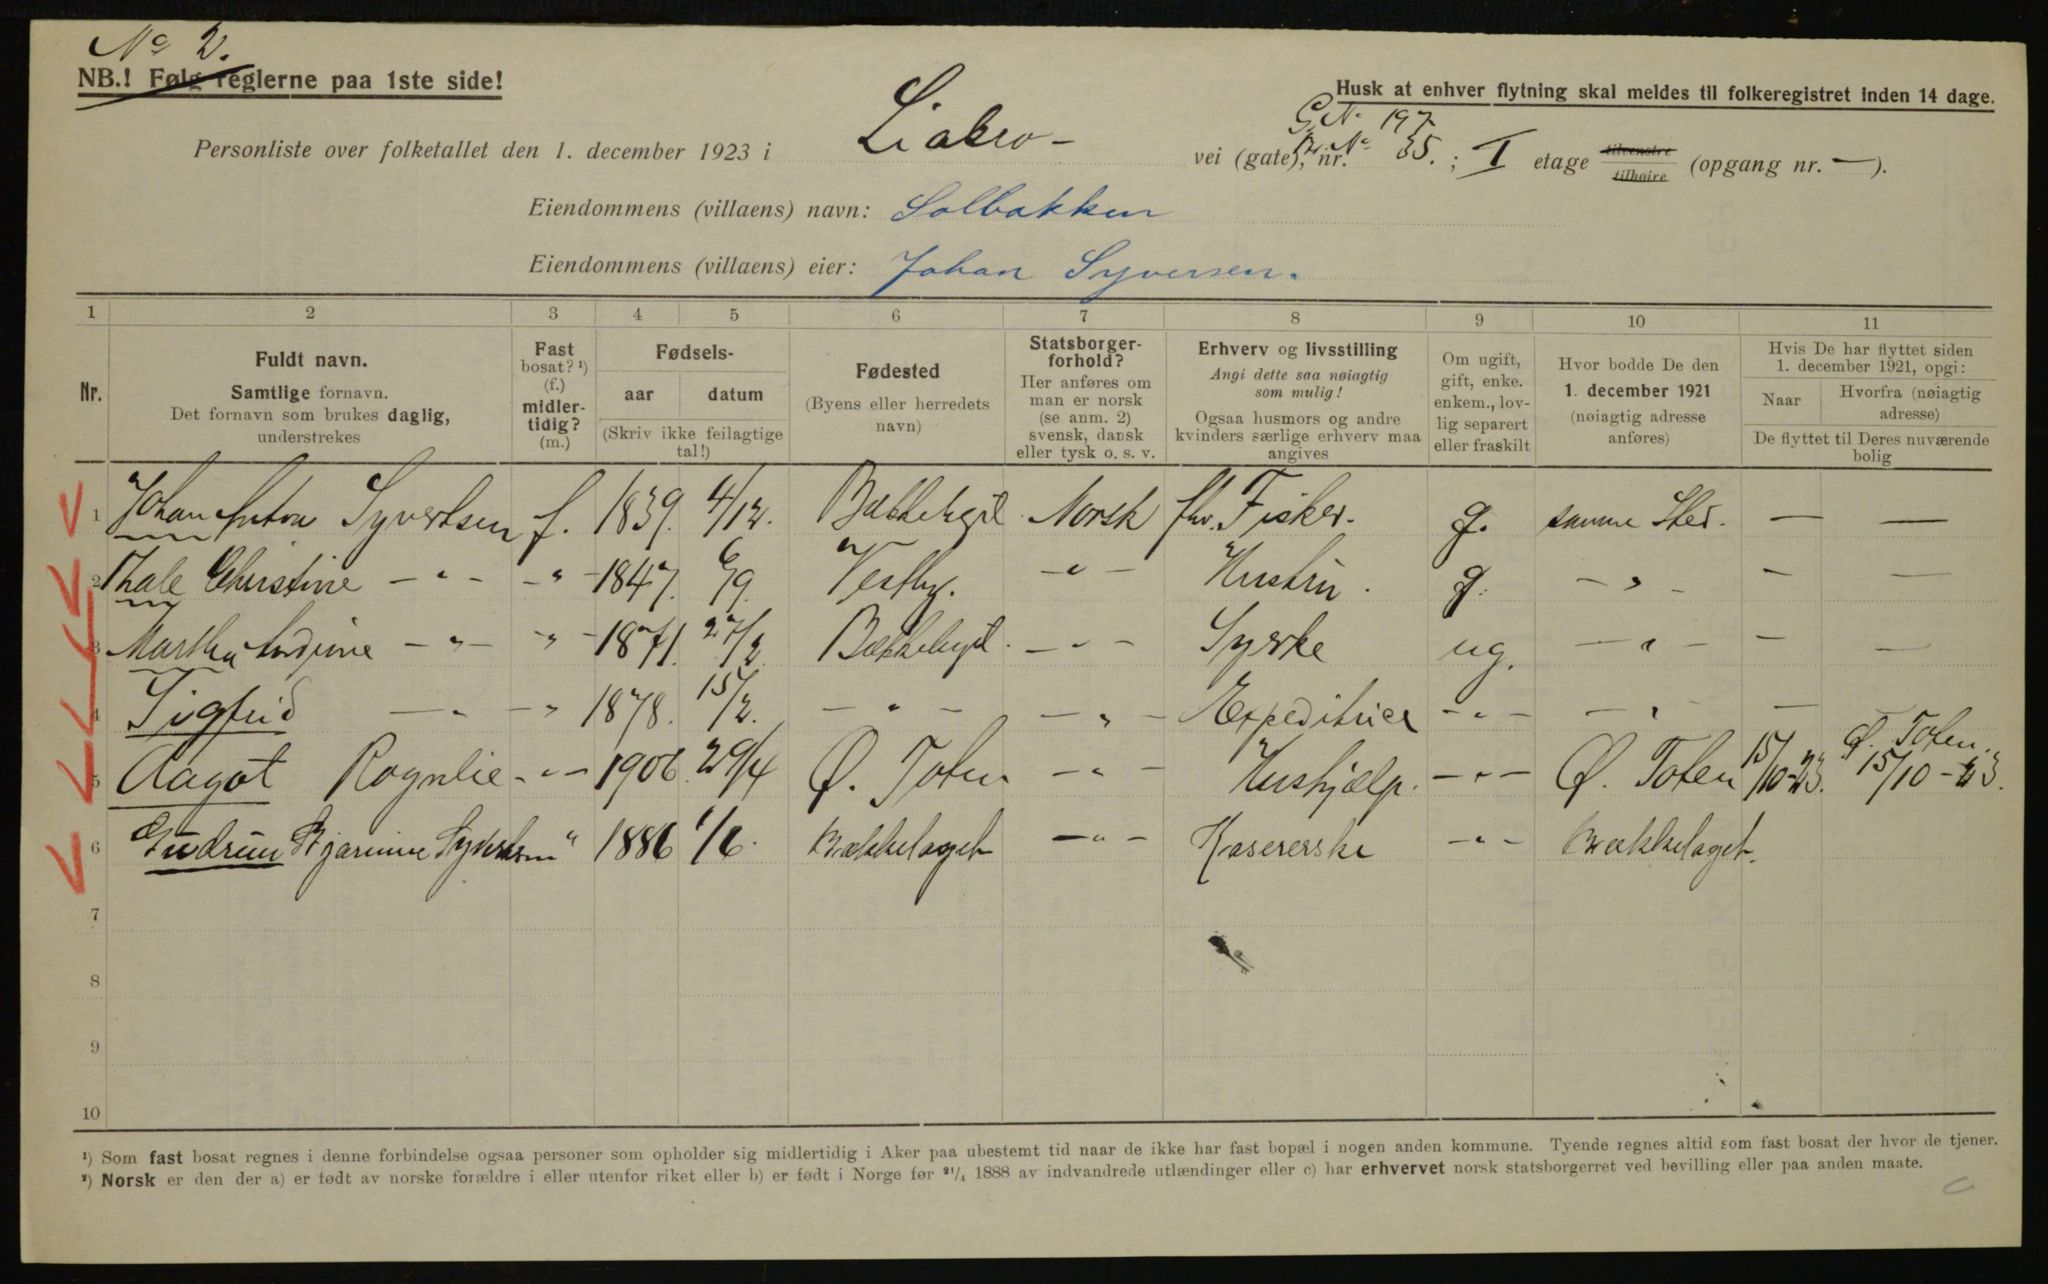 No 2.
NB.! Følg reglerne paa 1ste side!
Husk at enhver flytning skal meldes til folkeregistret inden 14 dage.
G. No 197
Personliste over folketallet den 1. december 1923 i Liabro - vei (gate), nr. Br. No 35. ; I etage tilvenstre tilhøire (opgang nr. — ).
Eiendommens (villaens) navn: Solbakken
Eiendommens (villaens) eier: Johan Syversen.
1 2 3 4 5 6 7 8 9 10 11
Nr.
Fuldt navn.
Samtlige fornavn.
Det fornavn som brukes daglig,
understrekes
Fast
bosat? ¹)
(f.)
midler-
tidig?
(m.)
Fødsels-
aar datum
(Skriv ikke feilagtige
tal!)
Fødested
(Byens eller herredets
navn)
Statsborger-
forhold?
Her anføres om
man er norsk
(se anm. 2)
svensk, dansk
eller tysk o. s. v.
Erhverv og livsstilling
Angi dette saa nøiagtig
som mulig!
Ogsaa husmors og andre
kvinders særlige erhverv maa
angives
Om ugift,
gift, enke.
enkem., lov-
lig separert
eller fraskilt
Hvor bodde De den
1. december 1921
(nøiagtig adresse
anføres)
Hvis De har flyttet siden
1. december 1921, opgi:
Naar
Hvorfra (nøiagtig
adresse)
De flyttet til Deres nuværende
bolig
1 Johan Anton Syvertsen f. 1839. 4/12. Norsk fhv. Fisker. g. samme Sted. — —
2 Thale Christine — " — — " — 1847. 6/9. Vestby. — " — Hustru. g. — " — — —
3 Martha Andine — " — " — 1871. 27/2 — " — Syerske ug. — " — — —
4 Sigfrid — " — " 1878. 15/2. — " — — " — Expeditrice — " — — " — — —
5 Aagot Rognlie — " — 1906. 29/4 Ø. Toten — " — Hushjælp. — " — Ø. Toten 15/10-23. Ø. Toten. 15/10-23.
6 Gudrun Bjarnine Syvertsen " 1886 1/6. Bækkelaget — " — Kasererske — " — Bækkelaget.
7
8
9
10
¹) Som fast bosat regnes i denne forbindelse ogsaa personer som opholder sig midlertidig i Aker paa ubestemt tid naar de ikke har fast bopæl i nogen anden kommune. Tyende regnes altid som fast bosat der hvor de tjener.
²) Norsk er den der a) er født av norske forældre i eller utenfor riket eller b) er født i Norge før ²¹/₄ 1888 av indvandrede utlændinger eller c) har erhvervet norsk statsborgerret ved bevilling eller paa anden maate.